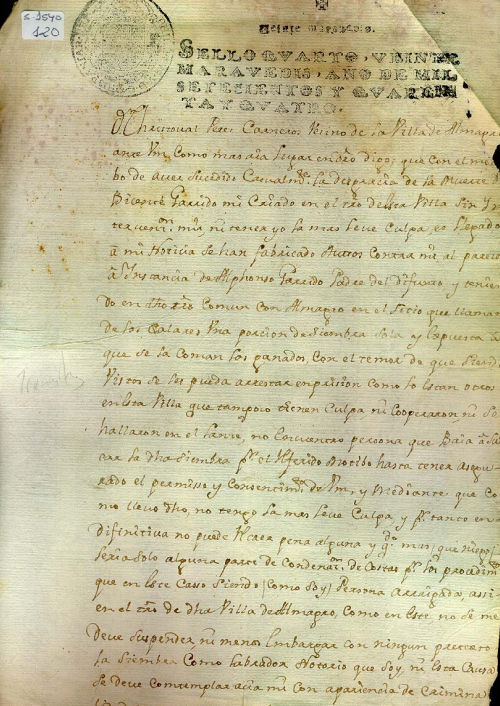 S-1540
120
SELLO QVARTO, VEINTE
MARAVEDIS, AÑO DE MIL
SETECIENTOS Y QVAREN
TA Y QVATRO.
Christoual Peres Carnero, Vezino de la Villa de Almagro
ante Vm como mas aia lugar en dro digo; que con el moti
bo de aver sucedido Casualmte la desgracia de la Muerte
Vicente Garrido mi Criado en el tño desta Villa Sin
terven mia ni tener yo la mas leve Culpa, a llegado
â mi Noticia se han fabricado Autos Contra mi al parecer
â Instancia de Alphonso Garrido Padre del difunto, y tenien
do en dho tño Comun con Almagro en el Sitio que llaman
de los Calares Vna porcion de siembra sola y expuesta a
que se la coman los ganados, con el temor de que siendo
Vistos se les pueda arrestar en prision como lo estan otros
en esta Villa que tampoco tienen Culpa ni Cooperaron ni se
hallaron en el lanze, no encuentro persona que Baia a sa
car la dha siembra pr el referido Motibo hasta tener asegu
rado el permiso y Consentim de Vm, y Mediante que Co
mo llevo dho, no tengo la mas leve Culpa, y pr tanto en
Difinitiva no puede Recaer pena alguna y qdo mas,
seria solo alguna parte de Condenan de Costas pr los procedim
que en este Caso Siendo (Como Soy) Persona arraigada, assi
en el tño de dha Villa de Almagro, Como en este no se me
Deve suspender, ni menos Embargar con ningun pretexto
la Siembra Como labrador Notorio que Soy, ni esta Causa
se deve Contemplar acia mi con apariencia de Crimina